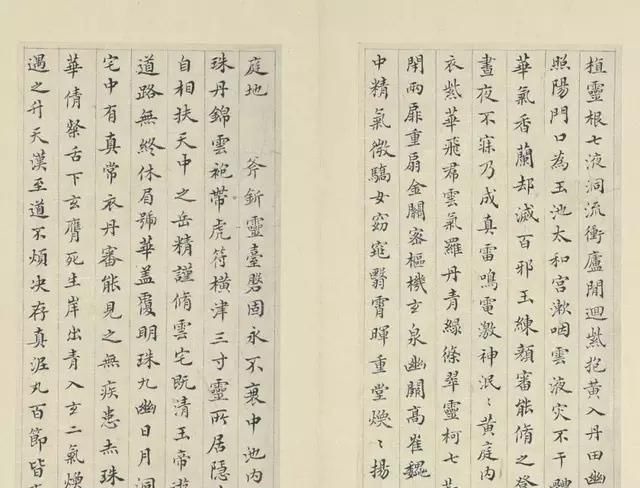 植靈根七液洞流衝廬間迴紫抱黃入丹田幽
照陽門口為玉池太和宮漱咽雲液灾不干
華氣香蘭却滅百邪玉練顏審能脩之登
晝夜不寐乃成真雷鳴電激神泯〻黃庭內
衣紫華飛帬雲氣羅丹青綠絛翠靈柯七
閇兩扉重扇金關密樞機玄泉幽關高崔巍
中精氣微驕女窈窕翳霄暉重堂煥〻揚
庭地 斧釿靈臺磐固永不衰中池內
珠丹錦雲袍帶虎符橫津三寸靈所居隱
自相扶天中之岳精謹脩雲宅既清玉帝遊
道路無終休眉號華蓋覆明珠九幽日月洞
宅中有真常衣丹審能見之無疾患赤珠
華倩粲舌下玄膺死生岸出青入玄二氣煥
遇之升天漢至道不煩决存真泥丸百節皆